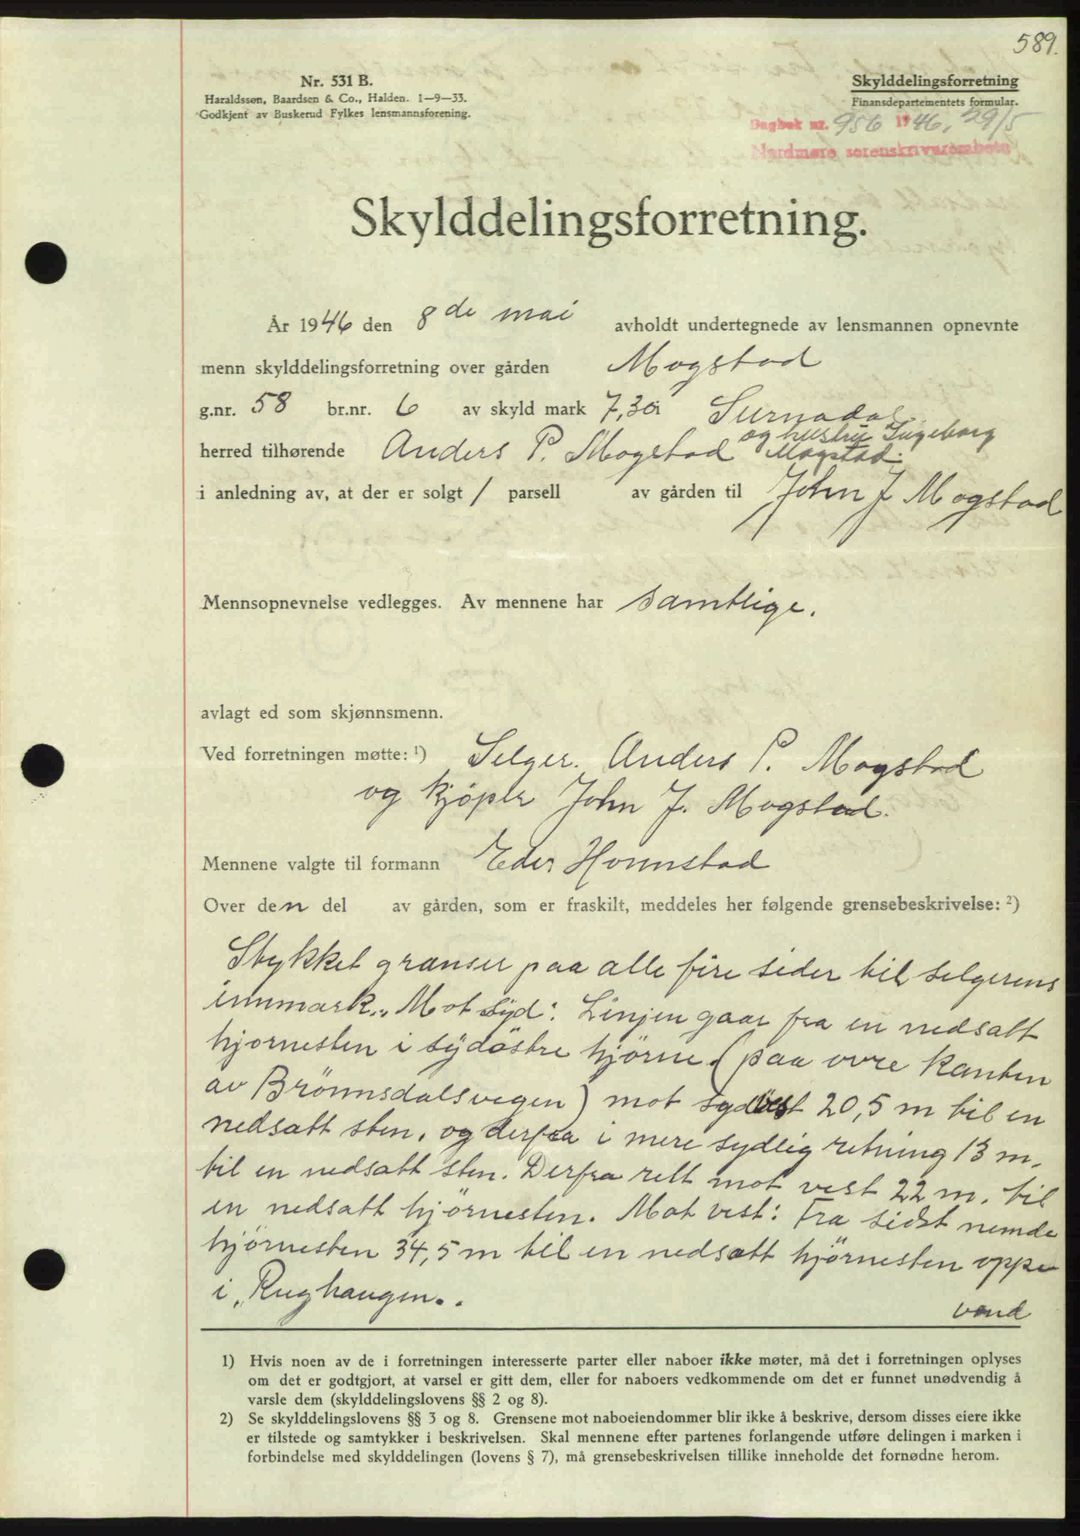 589.
Nr. 531 B.
Haraldssen, Baardsen & Co., Halden. 1-9-33.
Godkjent av Buskerud Fylkes lensmannsforening.
Skylddelingsforretning
Finansdepartementets formular.
Dagbok nr. 956 1946, 29/5
Nordmøre sorenskriverembete
Skylddelingsforretning.
År 1946 den 8de mai avholdt undertegnede av lensmannen opnevnte
menn skylddelingsforretning over gården Mogstad
g.nr. 58 br.nr. 6 av skyld mark 7,30 i Surnadal
herred tilhørende Anders P. Mogstad og hustru Ingeborg Mogstad.
i anledning av, at der er solgt 1 parsell av gården til John J Mogstad
Mennsopnevnelse vedlegges. Av mennene har samtlige.
avlagt ed som skjønnsmenn.
Ved forretningen møtte: 1) Selger. Anders P. Mogstad
og kjöper John J. Mogstad.
Mennene valgte til formann Eder Honnstad
Over den del av gården, som er fraskilt, meddeles her følgende grensebeskrivelse: 2)
Stykket grænser paa alle fire sider til selgerens
innmark. Mot syd: Linjen gaar fra en nedsatt
hjørnesten i sydöstre hjörne (paa övre kanten
av Brönnsdalsvegen) mot sydvest 20,5 m til en
nedsatt sten, og derfra i mere sydlig retning 13 m.
til en nedsatt sten. Derfra rett mot vest 22 m. til
en nedsatt hjörnesten. Mot vest: Fra sidst nemde
hjörnesten 34,5 m til en nedsatt hjörnesten oppe
i „Rughaugen".
vend
1) Hvis noen av de i forretningen interesserte parter eller naboer ikke møter, må det i forretningen oplyses
om det er godtgjort, at varsel er gitt dem, eller for naboers vedkommende om det er funnet unødvendig å
varsle dem (skylddelingslovens §§ 2 og 8).
2) Se skylddelingslovens §§ 3 og 8. Grensene mot naboeiendommer blir ikke å beskrive, dersom disses eiere ikke
er tilstede og samtykker i beskrivelsen. Skal mennene efter partenes forlangende utføre delingen i marken i
forbindelse med skylddelingen (lovens § 7), må grensebeskrivelsen tillike inneholde det fornødne herom.